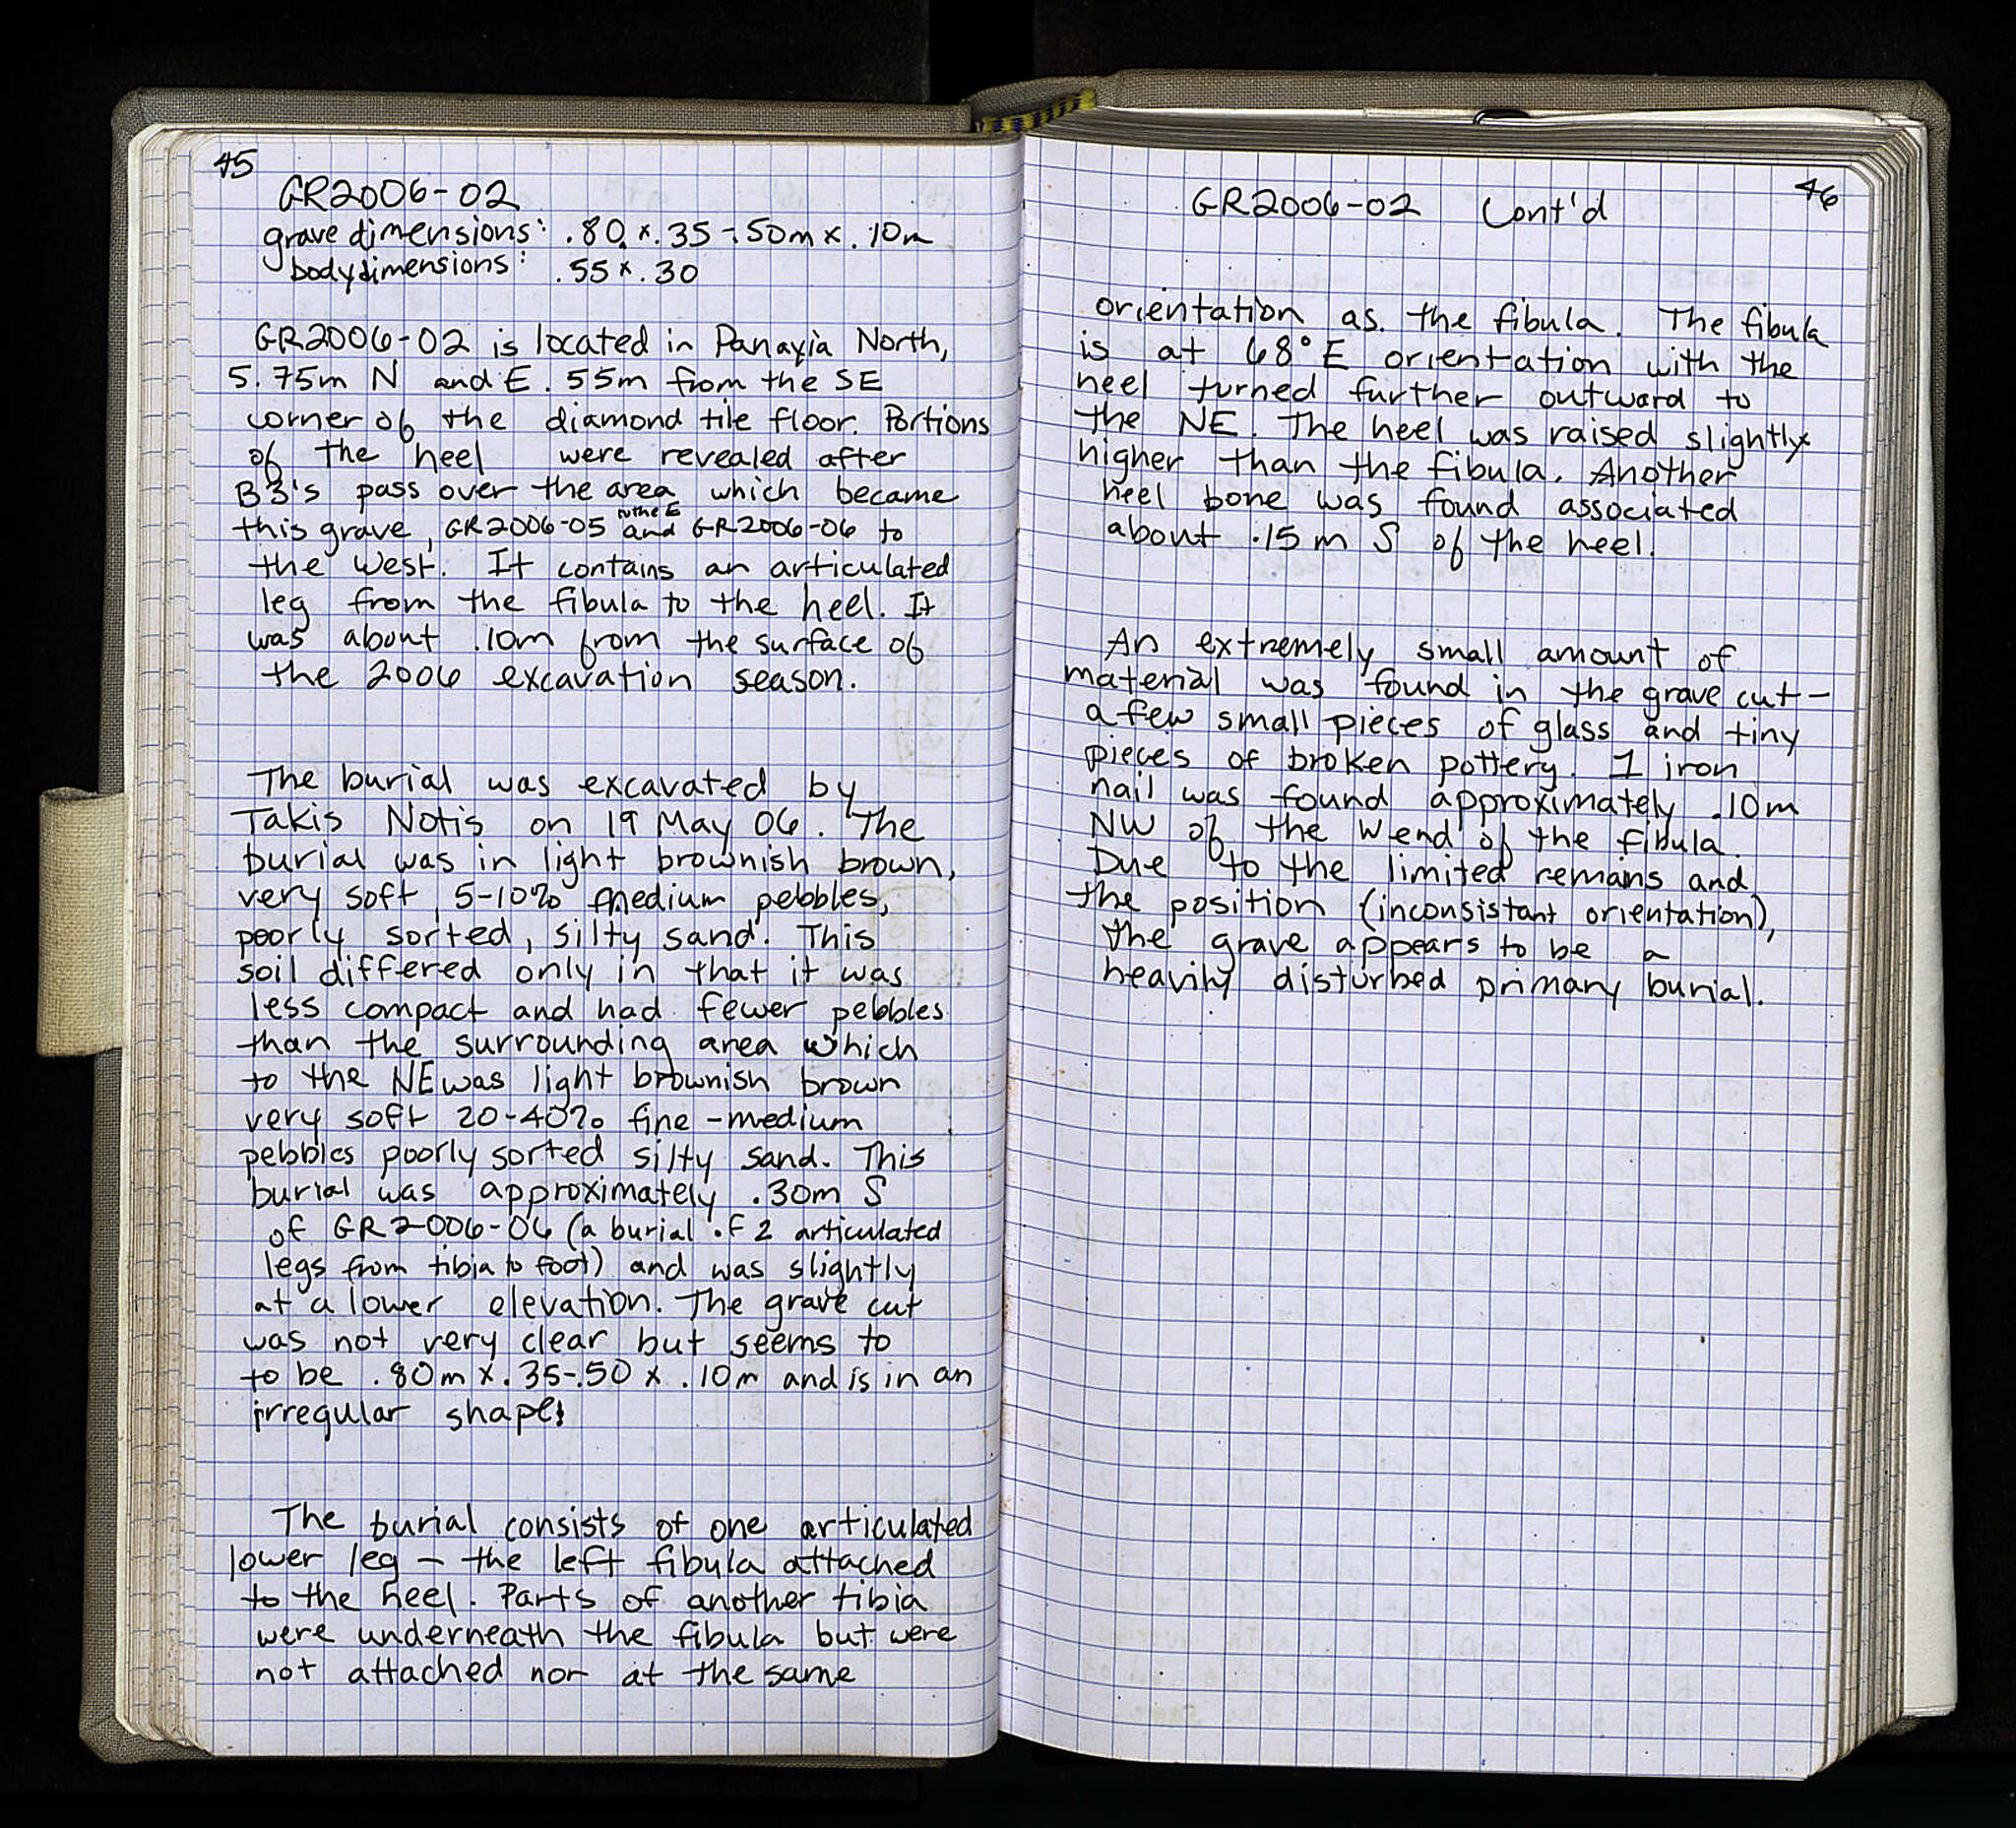 45
GR2006-02
grave dimensions: .80 x .35-.50m x .10m
body dimensions: .55 x .30
GR2006-02 is located in Panayia North,
5.75m N and E .55m from the SE
corner of the diamond tile floor. Portions
of the heel were revealed after
B3's pass over the area which became
this grave, GR2006-05 to the E and GR2006-06 to
the West. It contains an articulated
leg from the fibula to the heel. It
was about .10m from the surface of
the 2006 excavation season.
The burial was excavated by
Takis Notis on 19 May 06. The
burial was in light brownish brown,
very soft, 5-10% medium pebbles,
poorly sorted, silty sand. This
soil differed only in that it was
less compact and had fewer pebbles
than the surrounding area which
to the NE was light brownish brown
very soft 20-40% fine-medium
pebbles poorly sorted silty sand. This
burial was approximately .30m S
of GR2006-06 (a burial of 2 articulated
legs from tibia to foot) and was slightly
at a lower elevation. The grave cut
was not very clear but seems to
to be .80m x .35-.50 x .10m and is in an
irregular shape.
The burial consists of one articulated
lower leg - the left fibula attached
to the heel. Parts of another tibia
were underneath the fibula but were
not attached nor at the same
46
GR2006-02 Cont'd
orientation as the fibula. The fibula
is at 68° E orientation with the
heel turned further outward to
the NE. The heel was raised slightly
higher than the fibula. Another
heel bone was found associated
about .15m S of the heel.
An extremely small amount of
material was found in the grave cut -
a few small pieces of glass and tiny
pieces of broken pottery. 1 iron
nail was found approximately .10m
NW of the W end of the fibula.
Due to the limited remains and
the position (inconsistant orientation),
the grave appears to be a
heavily disturbed primary burial.